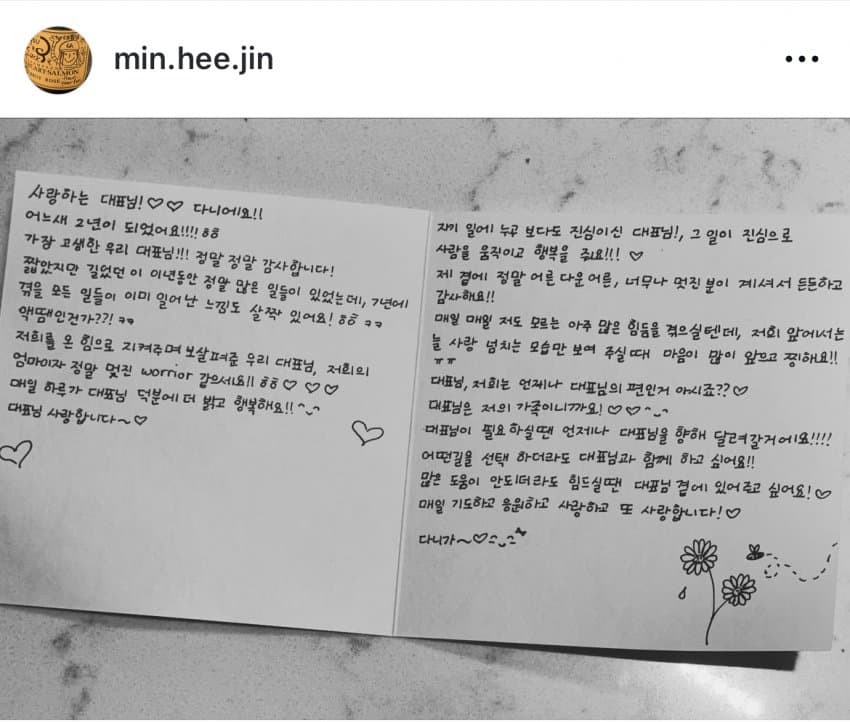 min.hee.jin
사랑하는 대표님!♡♡ 다니에요!!
어느새 2년이 되었어요!!!! ㅎㅎ
가장 고생한 우리 대표님!!! 정말 정말 감사합니다!
짧았지만 길었던 이 이년동안 정말 많은 일들이 있었는데, 7년에
겪을 모든 일들이 이미 일어난 느낌도 살짝 있어요! ㅎㅎ ㅋㅋ
액땜인건가??! ㅋㅋ
저희를 온 힘으로 지켜주며 보살펴준 우리 대표님, 저희의
엄마이자 정말 멋진 worrior 같으세요!! ㅎㅎ♡ ♡ ♡
매일 하루가 대표님 덕분에 더 밝고 행복해요!! ^_^
대표님 사랑합니다~♡
자기 일에 누구 보다도 진심이신 대표님!, 그 일이 진심으로
사람을 움직이고 행복을 줘요!!! ♡
제 곁에 정말 어른 다운 어른, 너무나 멋진 분이 계셔서 든든하고
감사해요!!
매일 매일 저도 모르는 아주 많은 힘듦을 겪으실텐데, 저희 앞에서는
늘 사랑 넘치는 모습만 보여 주실때 마음이 많이 아프고 찡해요!!
ㅠㅠ
대표님, 저희는 언제나 대표님의 편인거 아시죠??♡
대표님은 저의 가족이니까요! ♡♡ ^_^
대표님이 필요하실땐 언제나 대표님을 향해 달려갈거에요!!!!
어떤길을 선택 하더라도 대표님과 함께 하고 싶어요!!
많은 도움이 안되더라도 힘드실땐 대표님 곁에 있어주고 싶어요!♡
매일 기도하고 응원하고 사랑하고 또 사랑합니다!♡
다니가~♡